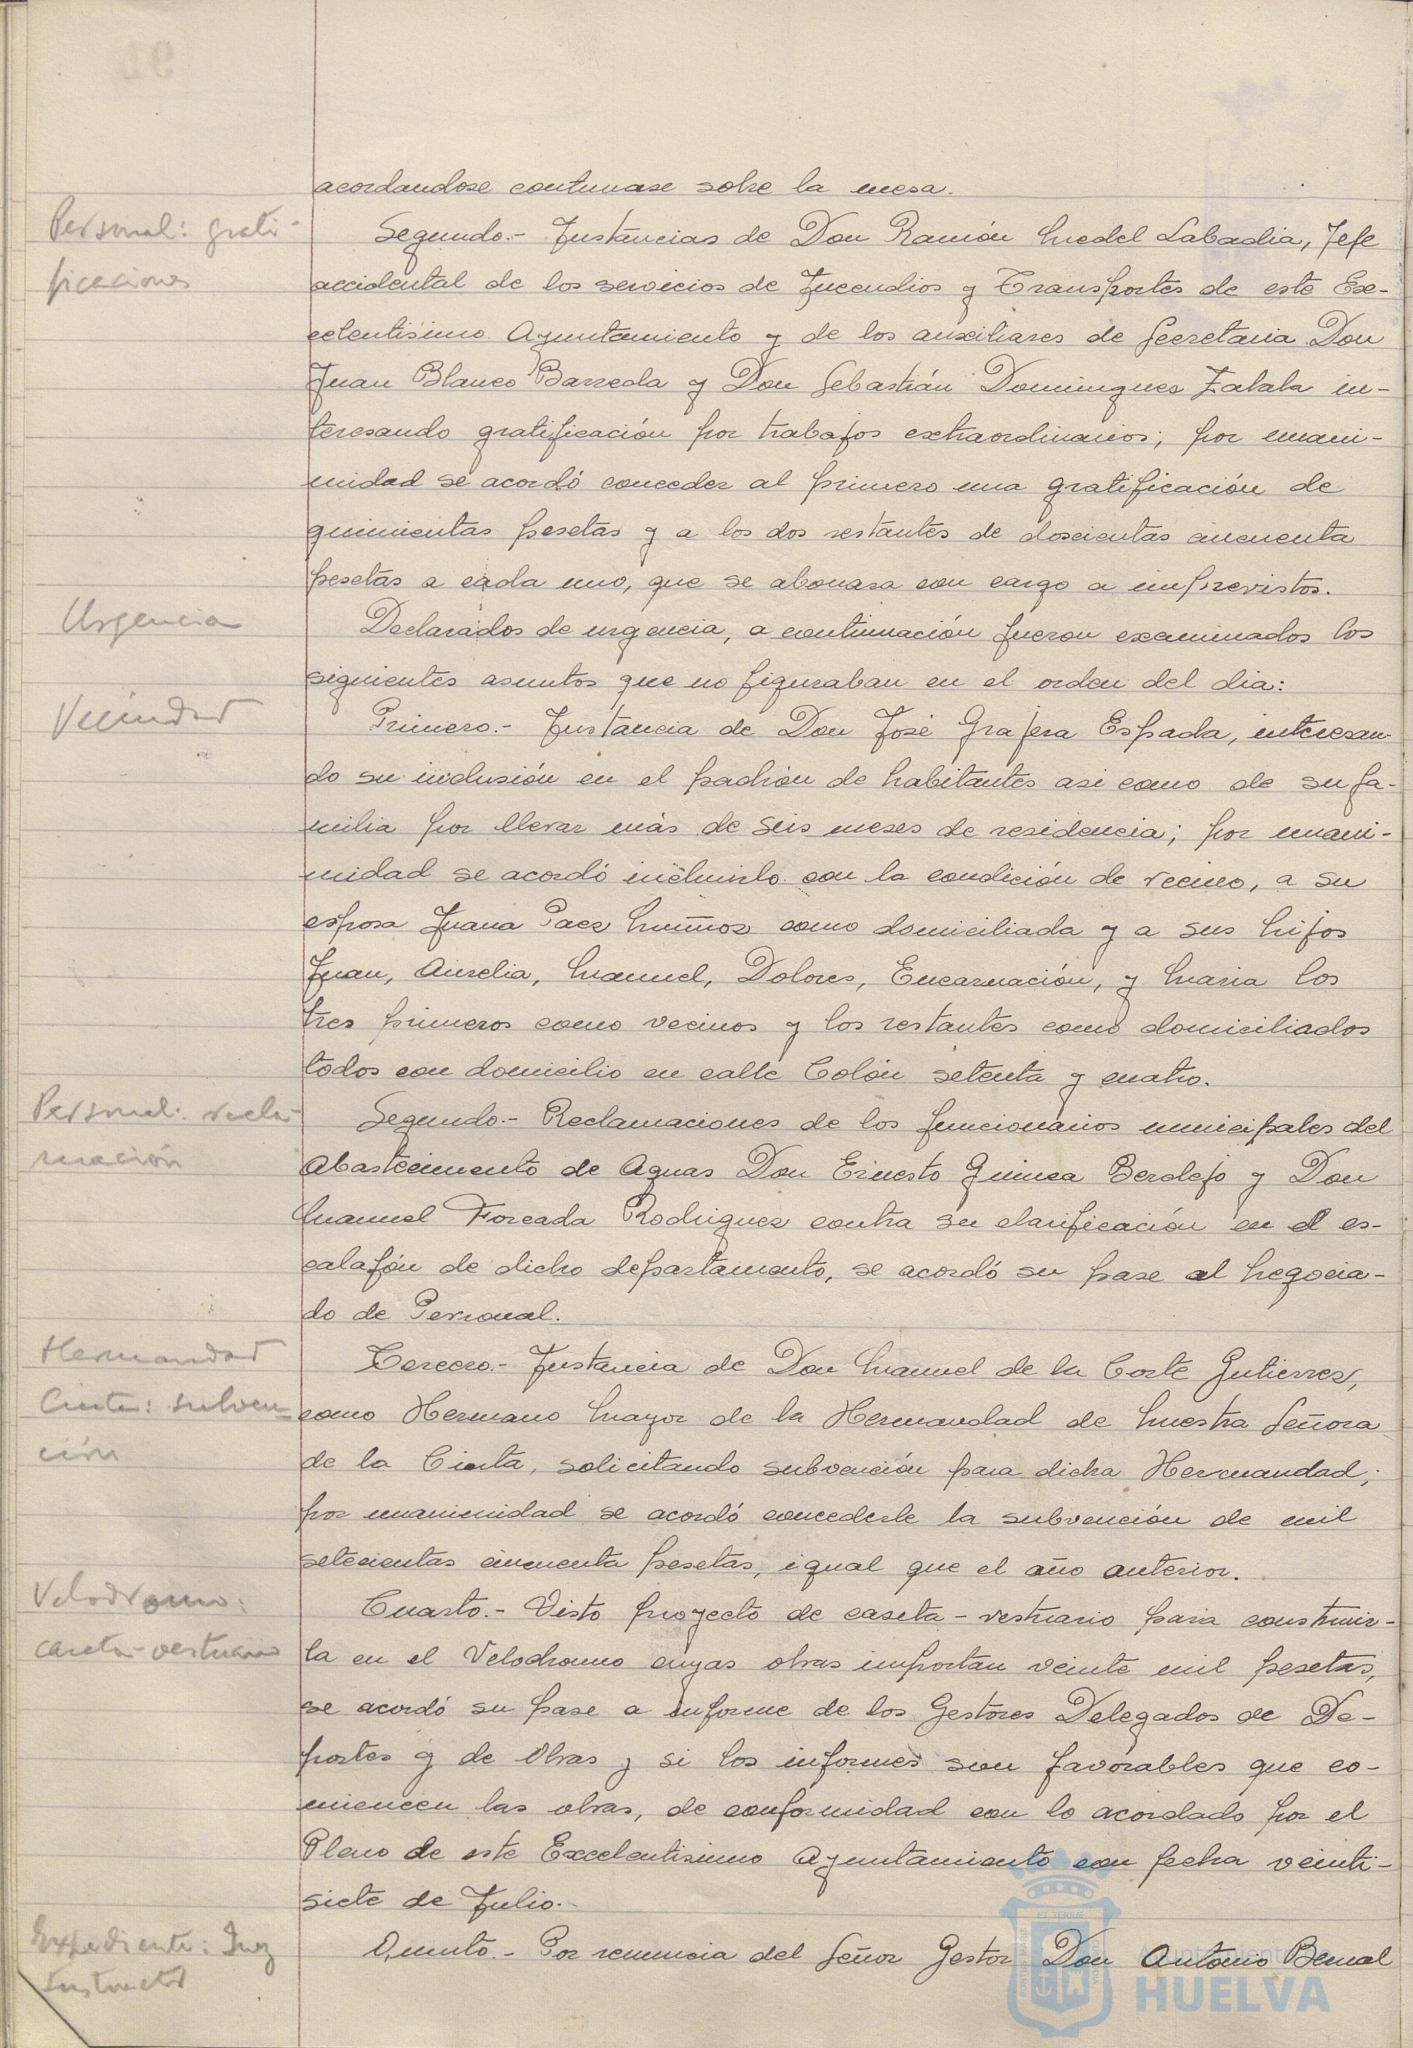 acordandose continuase sobre la mesa.
Personal: grati-
ficaciones
Segundo.- Instancias de Don Ramón Medel Labadia, Jefe
accidental de los servicios de Incendios y Transportes de este Exe-
celentisimo Ayuntamiento y de los auxiliares de Secretaria Don
Juan Blanco Barreda y Don Sebastián Dominguez Zabala in-
teresando gratificación por trabajos extraordinarios; por unani-
midad se acordó conceder al primero una gratificación de
quinientas pesetas y a los dos restantes de doscientas cincuenta
pesetas a cada uno, que se abonara con cargo a imprevistos.
Urgencia
Declarados de urgencia, a continuación fueron examinados los
siguientes asuntos que no figuraban en el orden del dia:
Vecindad
Primero.- Instancia de Don José Grajera Espada, interesan-
do su inclusión en el padrón de habitantes asi como de su fa-
milia por llevar más de seis meses de residencia; por unani-
midad se acordó incluirlo con la condición de vecino, a su
esposa Juana Paez Muñoz como domiciliada y a sus hijos
Juan, Aurelia, Manuel, Dolores, Encarnación, y Maria los
tres primeros como vecinos y los restantes como domiciliados
todos con domicilio en calle Colón setenta y cuatro.
Personal: recla-
mación
Segundo.- Reclamaciones de los funcionarios municipales del
Abastecimiento de Aguas Don Ernesto Guinea Berdejo y Don
Manuel Forcada Rodriguez contra su clasificación en el es-
calafón de dicho departamento, se acordó su pase al Negocia-
do de Personal.
Hermandad
Cinta: subven-
ción
Tercero.- Instancia de Don Manuel de la Corte Gutierrez,
como Hermano Mayor de la Hermandad de Nuestra Señora
de la Cinta, solicitando subvención para dicha Hermandad;
por unanimidad se acordó concederle la subvención de mil
setecientas cincuenta pesetas, igual que el año anterior.
Velodromo:
caseta-vestuario
Cuarto.- Visto proyecto de caseta-vestuario para construir-
la en el Velodromo cuyas obras importan veinte mil pesetas,
se acordó su pase a informe de los Gestores Delegados de De-
portes y de Obras y si los informes son favorables que co-
miencen las obras, de conformidad con lo acordado por el
Pleno de este Excelentisimo Ayuntamiento con fecha veinti-
siete de Julio.
Expediente: Juez
Instructor
Quinto.- Por renuncia del Señor Gestor Don Antonio Bernal
Ayuntamiento
HUELVA